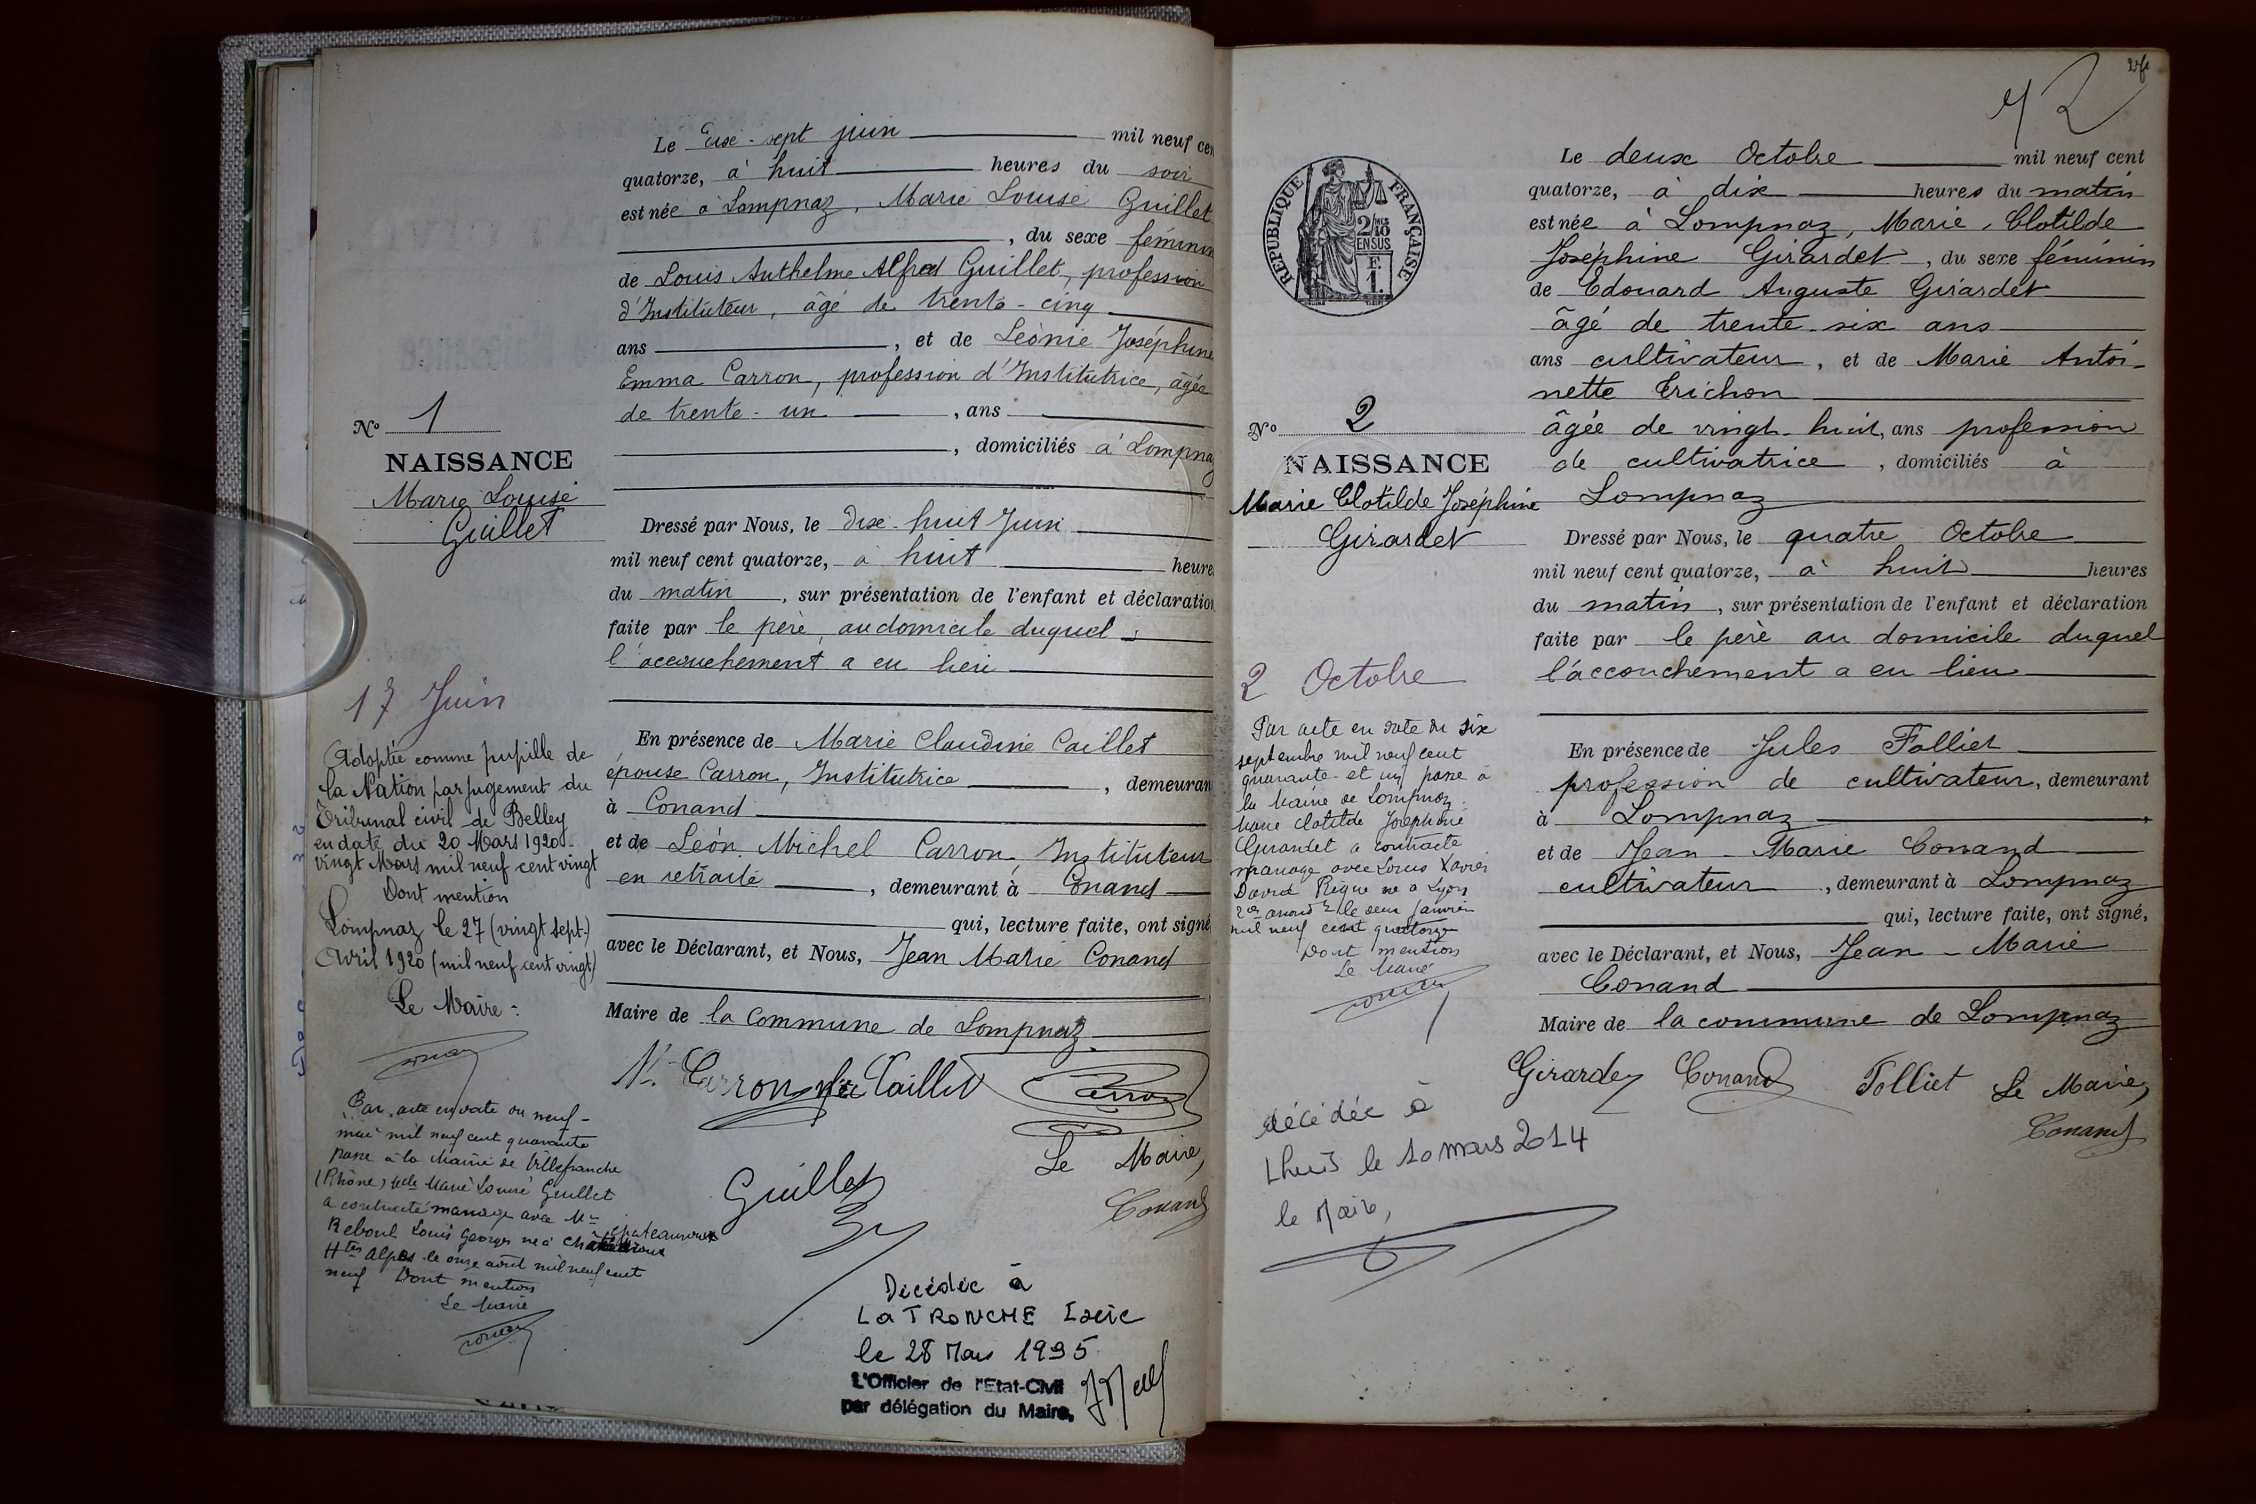 Le dix-sept juin mil neuf cen
quatorze, à huit heures du soir
est née à Lompnaz, Marie Louise Guillet
, du sexe féminin
de Louis Anthelme Alfred Guillet, profession
d'Instituteur, âgé de trente-cinq
ans , et de Léonie Joséphine
Emma Carron, profession d'Institutrice, âgée
de trente-un , ans
, domiciliés à Lompnaz
Dressé par Nous, le dix-huit Juin
mil neuf cent quatorze, à huit heures
du matin , sur présentation de l'enfant et déclaration
faite par le père, au domicile duquel
l'accouchement a eu lieu
En présence de Marie Claudine Caillet
épouse Carron, Institutrice , demeurant
à Conand
et de Léon Michel Carron, Instituteur
en retraite , demeurant à Conand
qui, lecture faite, ont signé
avec le Déclarant, et Nous, Jean Marie Conand
Maire de la Commune de Lompnaz
M. Carron née Caillet
Carron
Guillet
Le Maire,
Conand
No 1
NAISSANCE
Marie Louise
Guillet
17 Juin
Adoptée comme pupille de
la Nation par jugement du
Tribunal civil de Belley
en date du 20 Mars 1920
vingt Mars mil neuf cent vingt
Dont mention
Lompnaz le 27 (vingt sept)
Avril 1920 (mil neuf cent vingt)
Le Maire :
Par acte en date du neuf
mil neuf cent quarante
passé à la Mairie de Villefranche
(Rhône) Marie Louise Guillet
a contracté mariage avec Mr
Reboul Louis Georges né à Chateauroux
Htes Alpes le onze août mil neuf cent
neuf Dont mention
Le Maire
Décédée à
LA TRONCHE Isère
le 28 Mars 1995
L'Officier de l'Etat-Civil
par délégation du Maire,
72
RÉPUBLIQUE FRANÇAISE
2/10
EN SUS
F.
1.
Le deux Octobre mil neuf cent
quatorze, à dix heures du matin
est née à Lompnaz, Marie, Clotilde
Joséphine Girardet , du sexe féminin
de Edouard Auguste Girardet
âgé de trente-six ans
ans cultivateur , et de Marie Antoi-
nette Trichon
âgée de vingt-huit, ans profession
de cultivatrice , domiciliés à
Lompnaz
Dressé par Nous, le quatre Octobre
mil neuf cent quatorze, à huit heures
du matin , sur présentation de l'enfant et déclaration
faite par le père au domicile duquel
l'accouchement a eu lieu
En présence de Jules Folliet
profession de cultivateur, demeurant
à Lompnaz
et de Jean-Marie Conand
cultivateur , demeurant à Lompnaz
qui, lecture faite, ont signé,
avec le Déclarant, et Nous, Jean-Marie
Conand
Maire de la commune de Lompnaz
Girardet Conand Folliet Le Maire,
Conand
No 2
NAISSANCE
Marie Clotilde Joséphine
Girardet
2 Octobre
Par acte en date du six
septembre mil neuf cent
quarante-et un passé à
la Mairie de Lompnaz
Marie Clotilde Joséphine
Girardet a contracté
mariage avec Louis Xavier
David Rigue né à Lyon
2e arrondt le deux Janvier
mil neuf cent quatorze
Dont mention
Le Maire
décédée à
Lhuis le 10 mars 2014
le Maire,